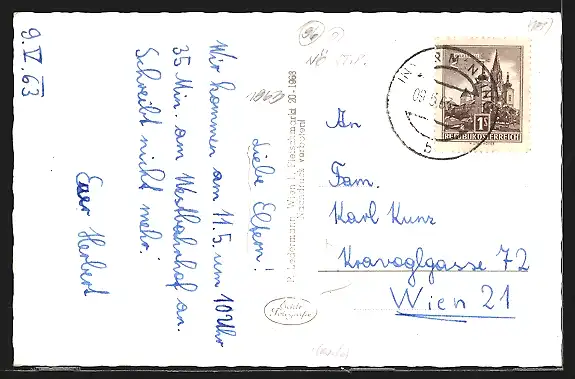 9.V.63
Liebe Eltern!
Wir kommen am 11.5. um 10 Uhr
35 Min. am Westbahnhof an.
Schreibt nicht mehr.
Euer Herbert
P. Ledermann, Wien I, Fleischmarkt 20 - 1963
Nachdruck verboten!
1963
Echte
Fotografie
1S
REPUBLIK ÖSTERREICH
An
Fam.
Karl Kunz
Kravoglgasse 72
Wien 21